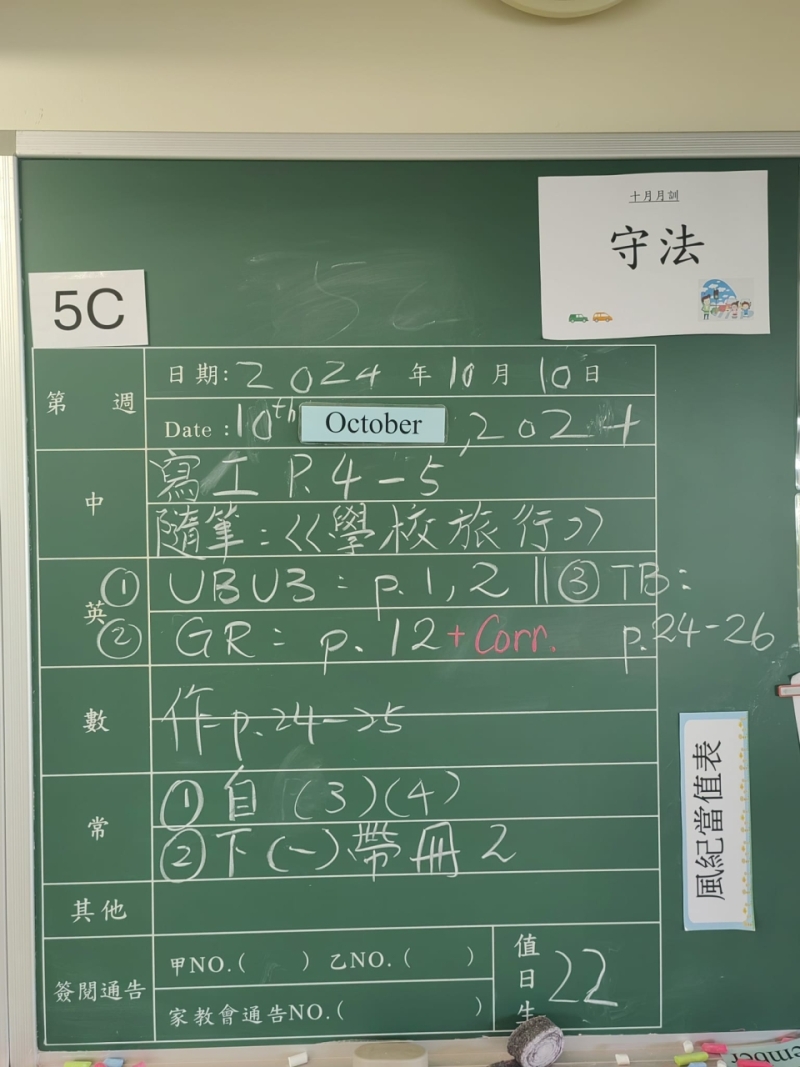 十月月訓
守法
5C
5C
第 週
日期: 2024 年 10 月 10 日
Date : 10th October, 2024
中
寫工 P.4-5
隨筆:《學校旅行》
英
① UBU3: p.1, 2 || ③ TB:
② GR: p.12 + Corr. p.24-26
數
作 p.24-25
常
① 自 (3)(4)
② 下(一)帶冊2
其他
簽閱通告
甲NO.( ) 乙NO.( )
家教會通告NO.( )
值日生 22
風紀當值表
ember